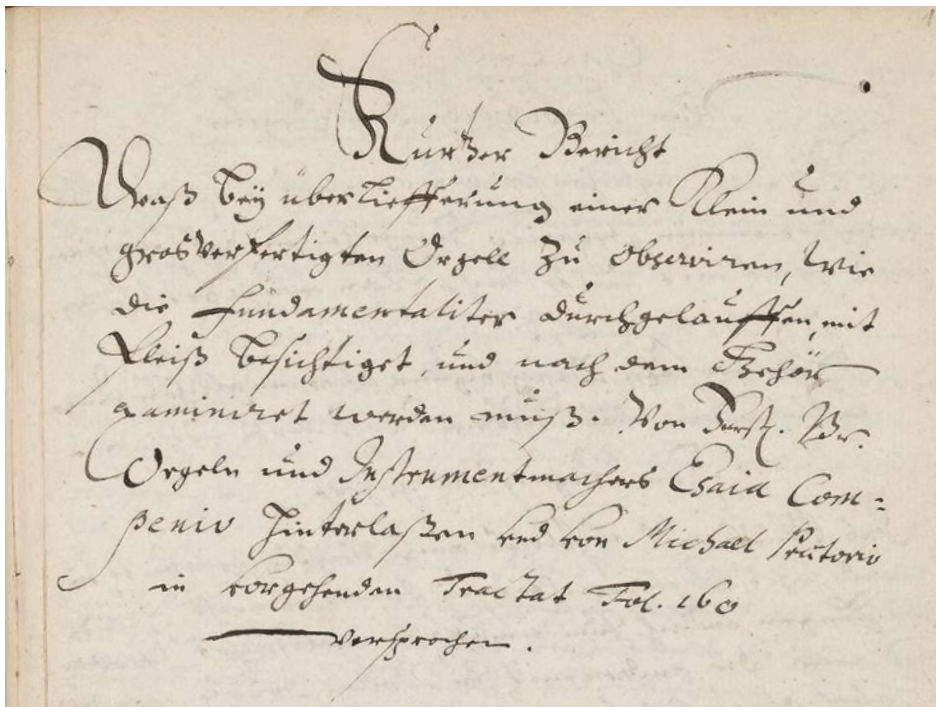 Kurtzer Bericht
Waß beÿ überliefferung einer Klein und
grosverfertigten Orgell zu observiren, wie
die fundamentaliter durchgelauffen, mit
fleiß besichtiget, und nach dem Gehör
examiniret werden muß. Von Fürstl. Br.
Orgeln und Instrumentmachers Esaia Com=
penio hinterlaßen und von Michael Pretorio
in vorgehenden Tractat Fol. 160
versprochen.